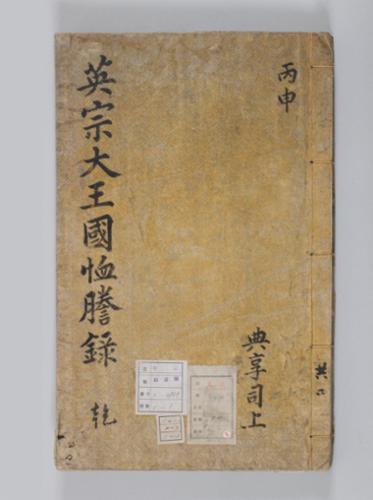 丙申
英宗大王國恤謄錄 乾
典享司上
共二